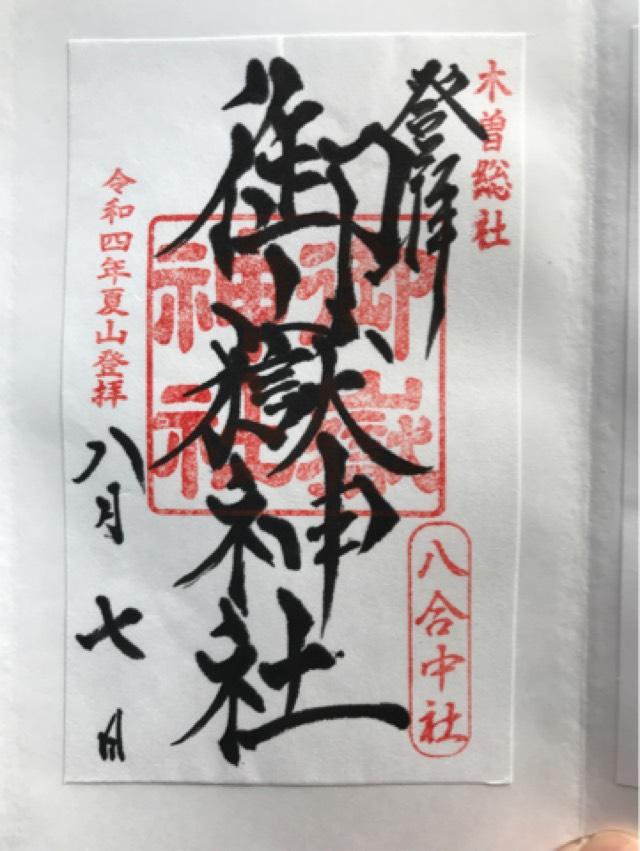 木曽総社
登拝
御嶽神社
御嶽神社
八合中社
令和四年夏山登拝
八月七日